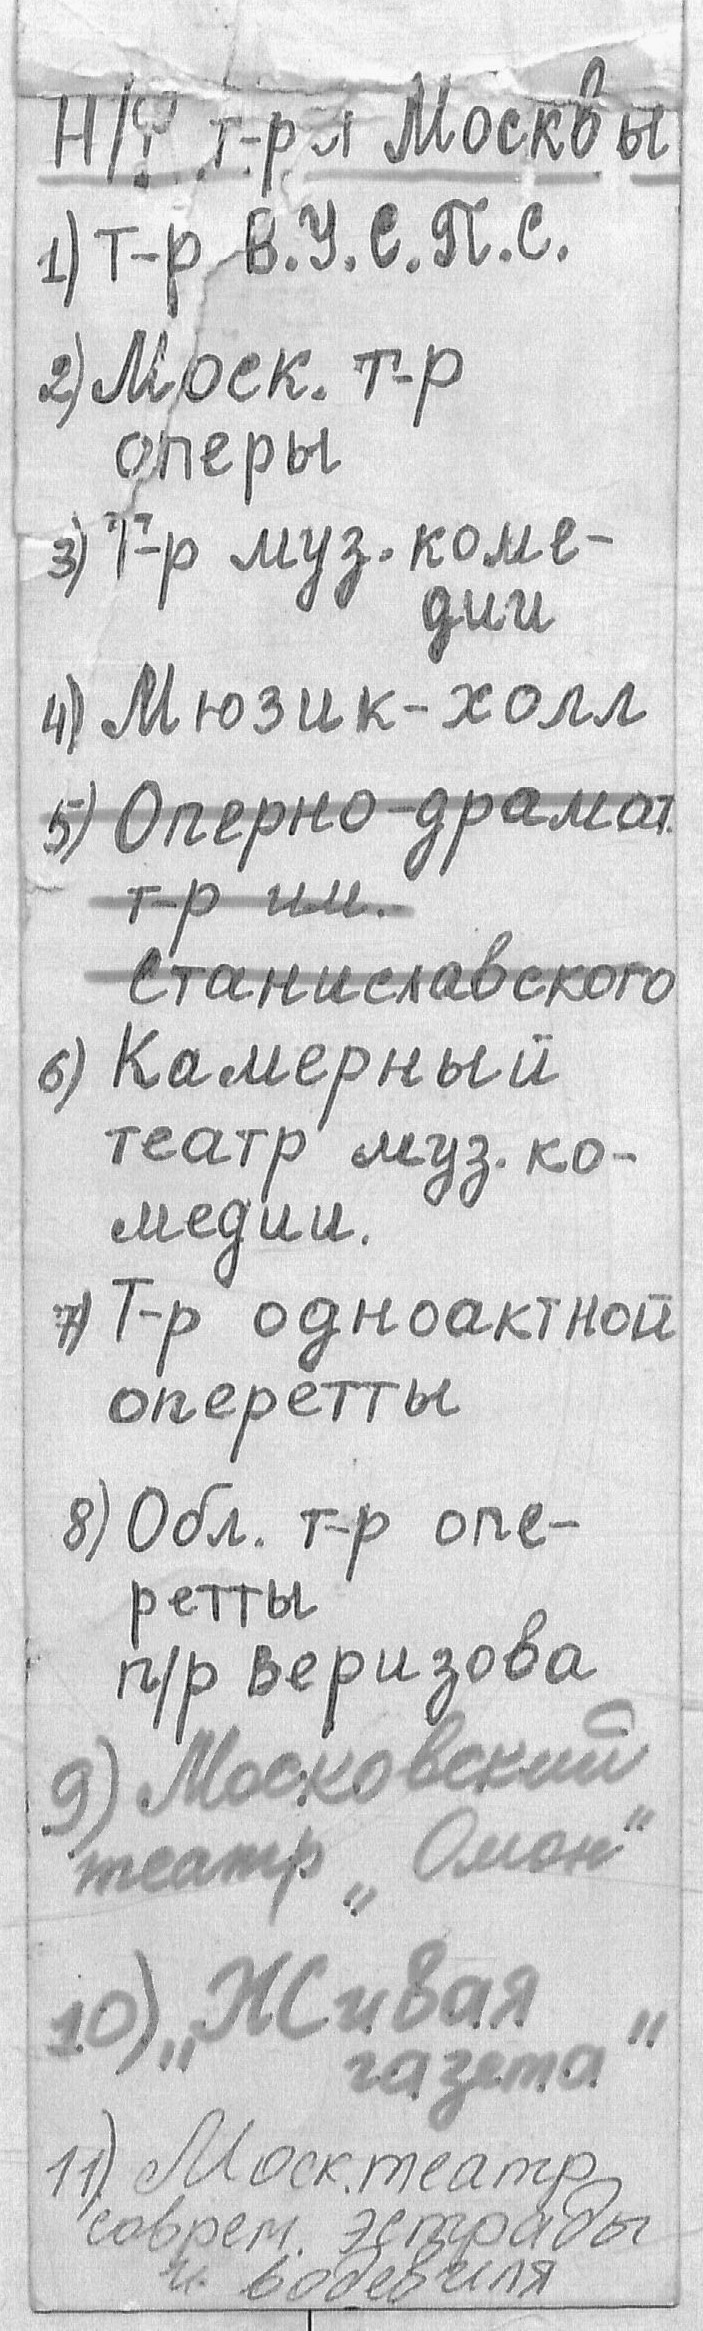 Н/Ф т-ры Москвы
1) Т-р В.У.С.П.С.
2) Моск. т-р
оперы
3) Т-р муз. коме-
дии
4) Мюзик-холл
5) Оперно-драмат.
т-р им.
Станиславского
6) Камерный
театр муз. ко-
медии.
7) Т-р одноактной
оперетты
8) Обл. т-р опе-
ретты
п/р Веризова
9) Московский
театр „Омон"
10) „Живая
газета"
11) Моск. театр
соврем. эстрады
и водевиля